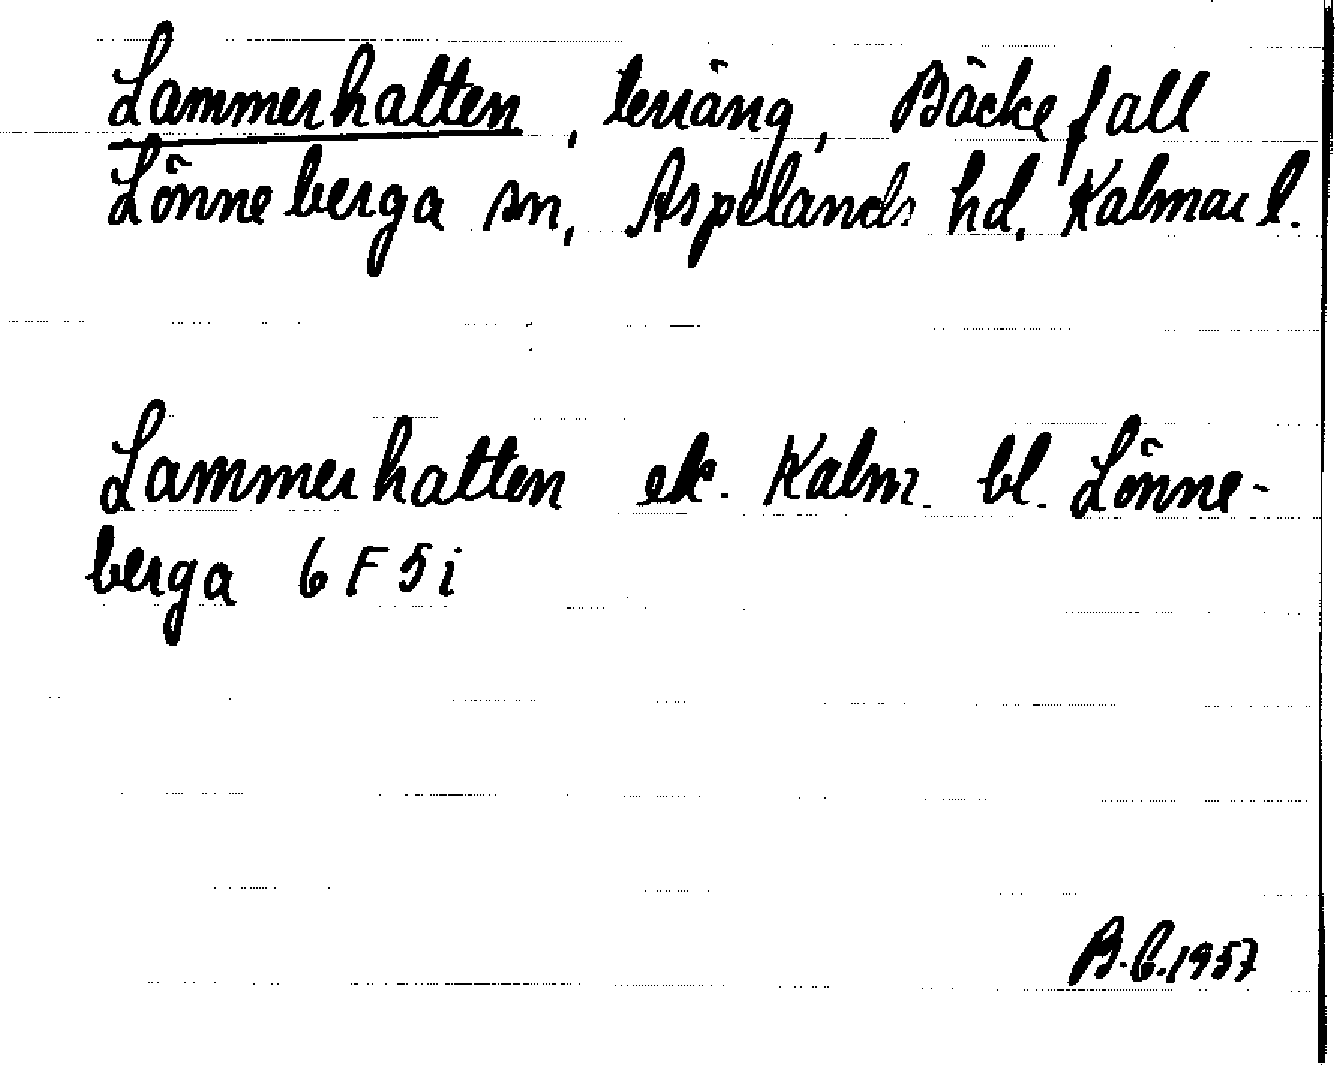 Lammerhatten, terräng, Bäckefall
Lönneberga sn, Aspelands hd. Kalmar l.
Lammerhatten ek. Kalm. bl. Lönne-
berga 6 F 5 i
B.G. 1957